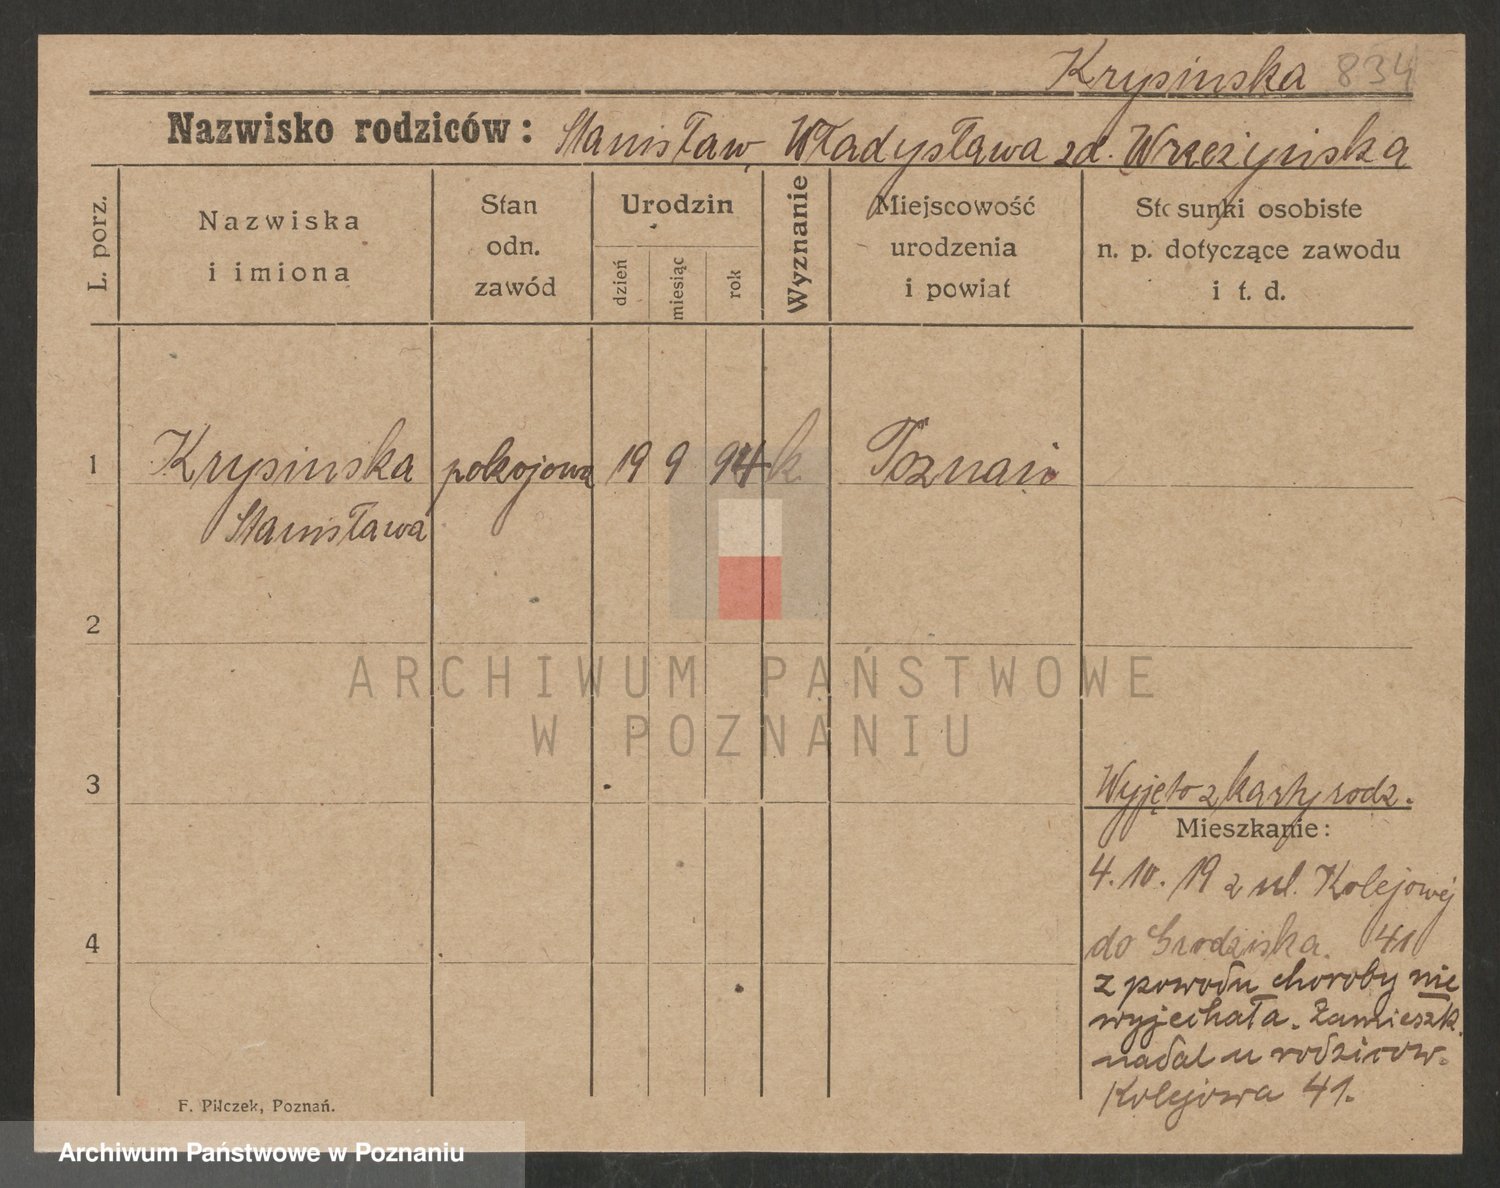 Krysinska 834
Nazwisko rodziców: Stanisław, Władysława zd.
L. porz.
Nazwiska
i imiona
Stan
odn.
zawód
Urodzin
dzień
miesiąc
rok
Wyznanie
Miejscowość
urodzenia
i powiat
Stosunki osobiste
n. p. dotyczące zawodu
i t. d.
1 Krysinska pokojowa 19 9 94 k Poznań
Stanisława
2
3
Wyjęto z karty rodz.
Mieszkanie:
4. 10. 19 z ul. Kolejowej
4
do Grodziska. 41
z powodu choroby nie
wyjechała. Zamieszk.
nadal u rodziców.
Kolejowa 41.
F. Pilczek, Poznań.
ARCHIWUM PAŃSTWOWE
W POZNANIU
Archiwum Państwowe w Poznaniu